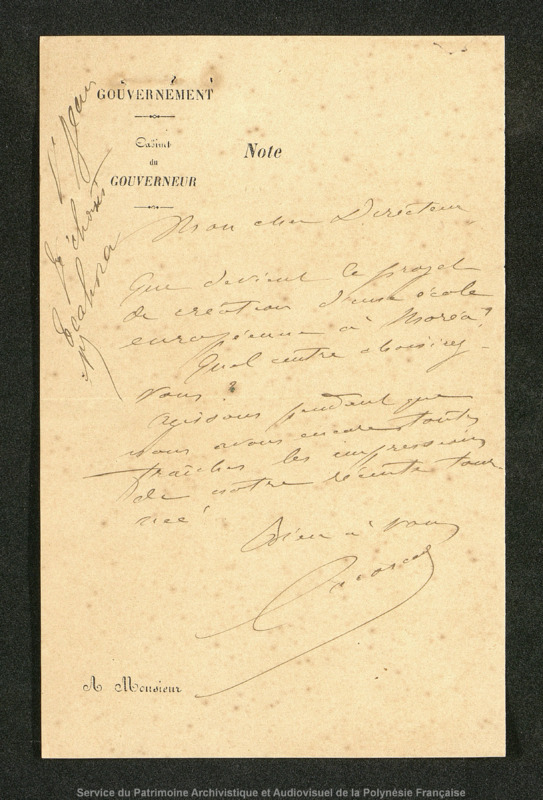 GOUVERNEMENT
Cabinet
du
GOUVERNEUR
Note
Mon cher Directeur
Que devient le projet
de création d'une école
européenne à Moréa?
Quel centre choisiriez-
vous?
Agissons pendant que
nous avons encore toutes
fraîches les impressions
de notre récente tour-
née!
Bien à vous
A Monsieur
Service du Patrimoine Archivistique et Audiovisuel de la Polynésie Française